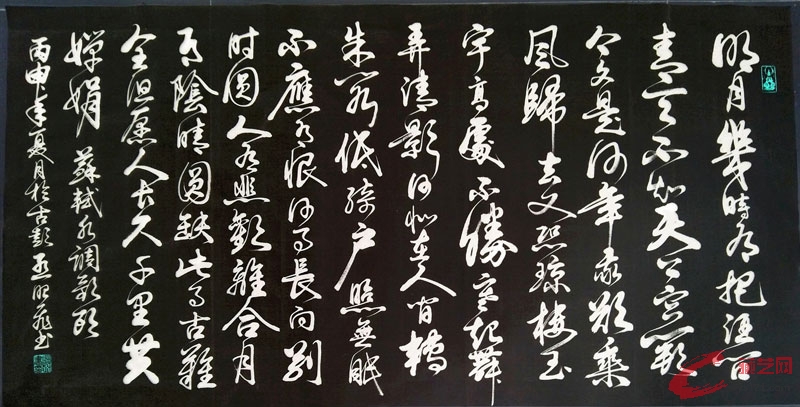 明月幾時有把酒问
青天不知天上宫阙
今夕是何年我欲乘
风歸去又恐琼楼玉
宇高處不勝寒起舞
弄清影何似在人间轉
朱阁低绮户照無眠
不應有恨何事长向别
时圆人有悲歡離合月
有陰晴圆缺此事古難
全但愿人长久千里共
嬋娟 蘇軾水调歌头
丙申年夏月於古彭